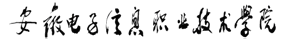 安徽电子信息职业技术学院